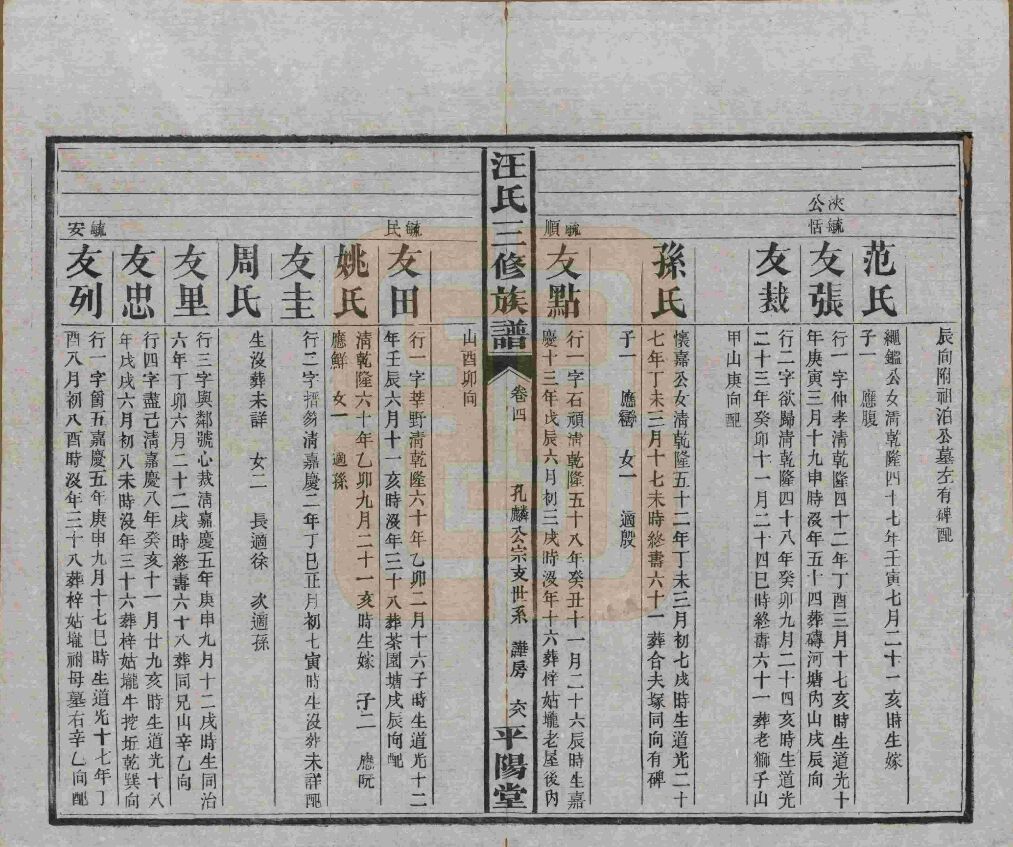 辰向附祖泊公墓左有碑配
范氏
繩鑑公女清乾隆四十七年壬寅七月二十一亥時生嫁
子一 應腹
浹公
毓恬
友張
行一字仲孝清乾隆四十二年丁酉三月十七亥時生道光十
年庚寅三月十九申時沒年五十四葬磚河塘內山戌辰向
友裁
行二字欲歸清乾隆四十八年癸卯九月二十四亥時生道光
二十三年癸卯十一月二十四巳時終壽六十一葬老獅子山
甲山庚向配
孫氏
懷嘉公女清乾隆五十二年丁未三月初七戌時生道光二十
七年丁未三月十七未時終壽六十一葬合夫塚同向有碑
子一 應 女一 適殷
毓順
友點
行一字石頑清乾隆五十八年癸丑十一月二十六辰時生嘉
慶十三年戊辰六月初三戌時沒年十六葬梓姑壠老屋後內
汪氏三修族譜
卷四
孔麟公宗支世系 譁房 平陽堂
山酉卯向
毓民
友田
行一字莘野清乾隆六十年乙卯二月十六子時生道光十二
年壬辰六月十一亥時沒年三十八葬茶園塘戌辰向配
姚氏
清乾隆六十年乙卯九月二十一亥時生嫁 子二 應阮
應鮮 女一 適孫
友圭
行二字搢笏清嘉慶二年丁巳正月初七寅時生沒葬未詳配
周氏
生沒葬未詳 女二 長適徐 次適孫
友里
行三字與鄰號心裁清嘉慶五年庚申九月十二戌時生同治
六年丁卯六月二十二戌時終壽六十八葬同兄山辛乙向
友忠
行四字盡己清嘉慶八年癸亥十一月廿九亥時生道光十八
年戊戌六月初八未時沒年三十六葬梓姑壠牛挖坵乾巽向
毓安
友列
行一字爵五嘉慶五年庚申九月十七巳時生道光十七年丁
酉八月初八酉時沒年三十八葬梓姑壠祔母墓右辛乙向配